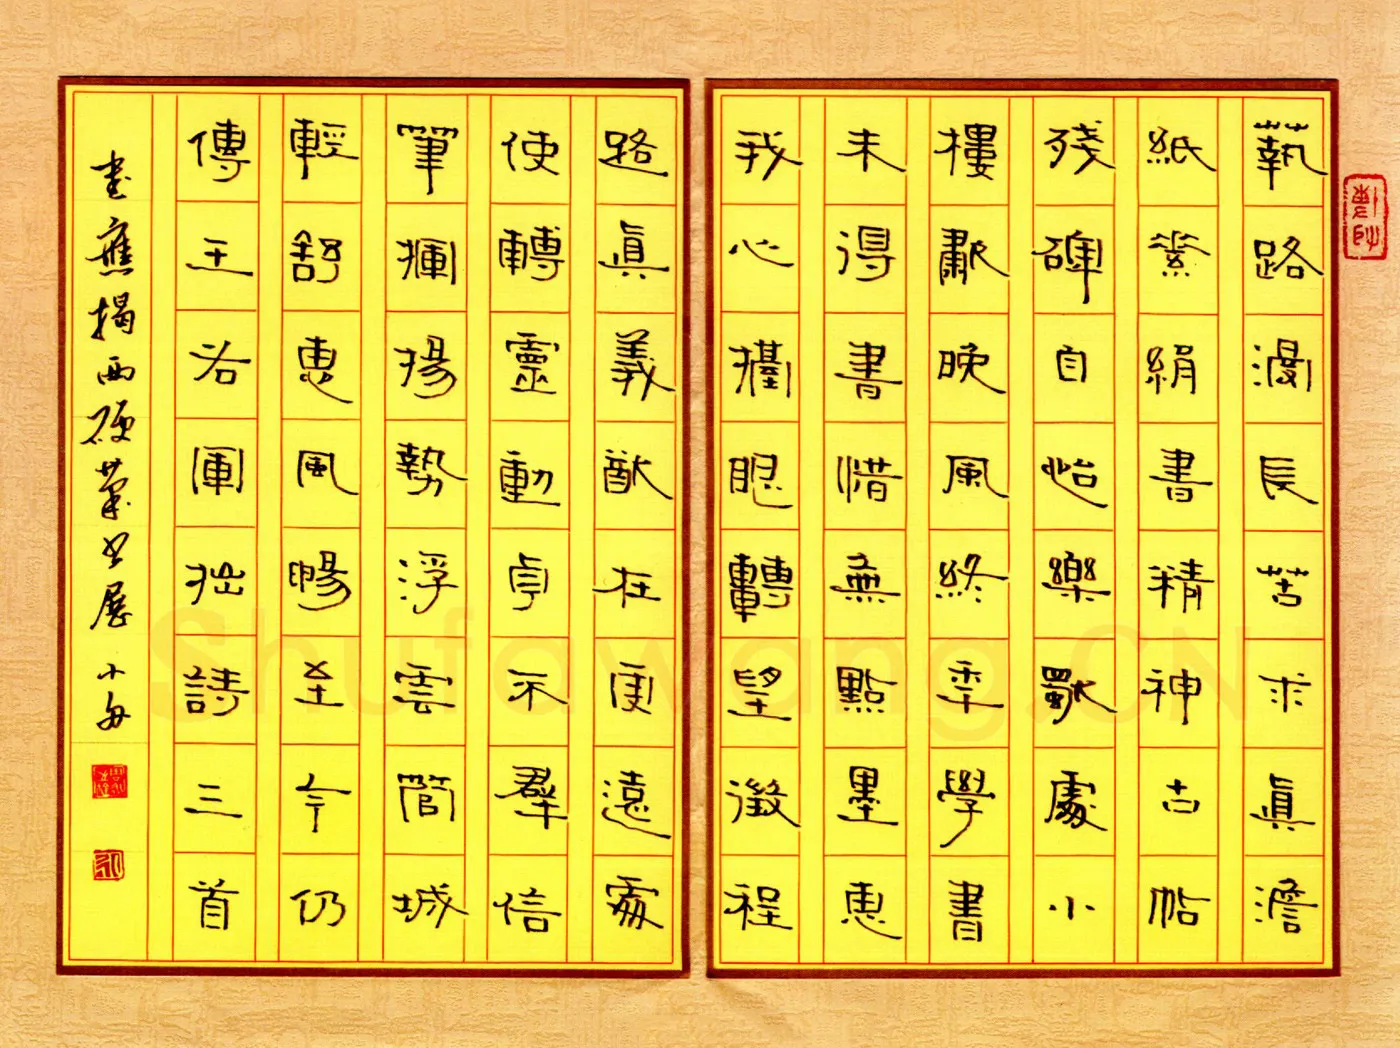 蓺路漫長苦求眞澹
紙絹書精神古帖
殘碑自怡樂獨處小
樓肅晚風終年學書
未得書惜無點墨惠
我心擡眼轉望徵程
路眞義猷在更遠處
使轉靈動卓不羣信
筆揮揚勢浮雲管城
輕舒惠風暢至今仍
傳王右軍拙詩三首
書應揭西硬筆書展
Shufawang.CN